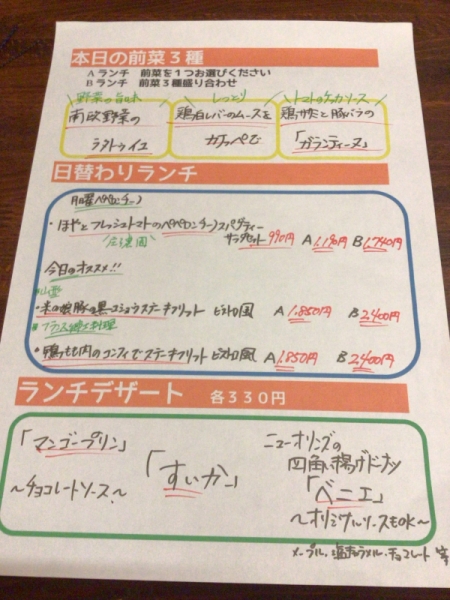 本日の前菜３種
Ａランチ　前菜を１つお選びください
Ｂランチ　前菜３種盛り合わせ
野菜の旨味
南欧野菜の
ラタトゥイユ
しっとり
鶏白レバーのムースを
カナッペで
トマトケッカソース
鶏ササミと豚バラの
「ガランティーヌ」
日替わりランチ
月曜ペペロンチーノ
・ほやとフレッシュトマトのペペロンチーノスパゲティー
サラダセット 990円　A 1,190円　B 1,740円
今日のオススメ!!
山形
・米の娘豚の黒コショウステーキフリット　ビストロ風　A 1,850円　B 2,400円
・鴨もも肉のコンフィでステーキフリット　ビストロ風　A 1,850円　B 2,400円
ランチデザート　各３３０円
「マンゴープリン」
～チョコレートソース～
「すいか」
ニューオリンズの
四角い揚げドーナツ
「ベニエ」
～オリジナルソースもOK～
メープル、塩キャラメル、チョコレート 等